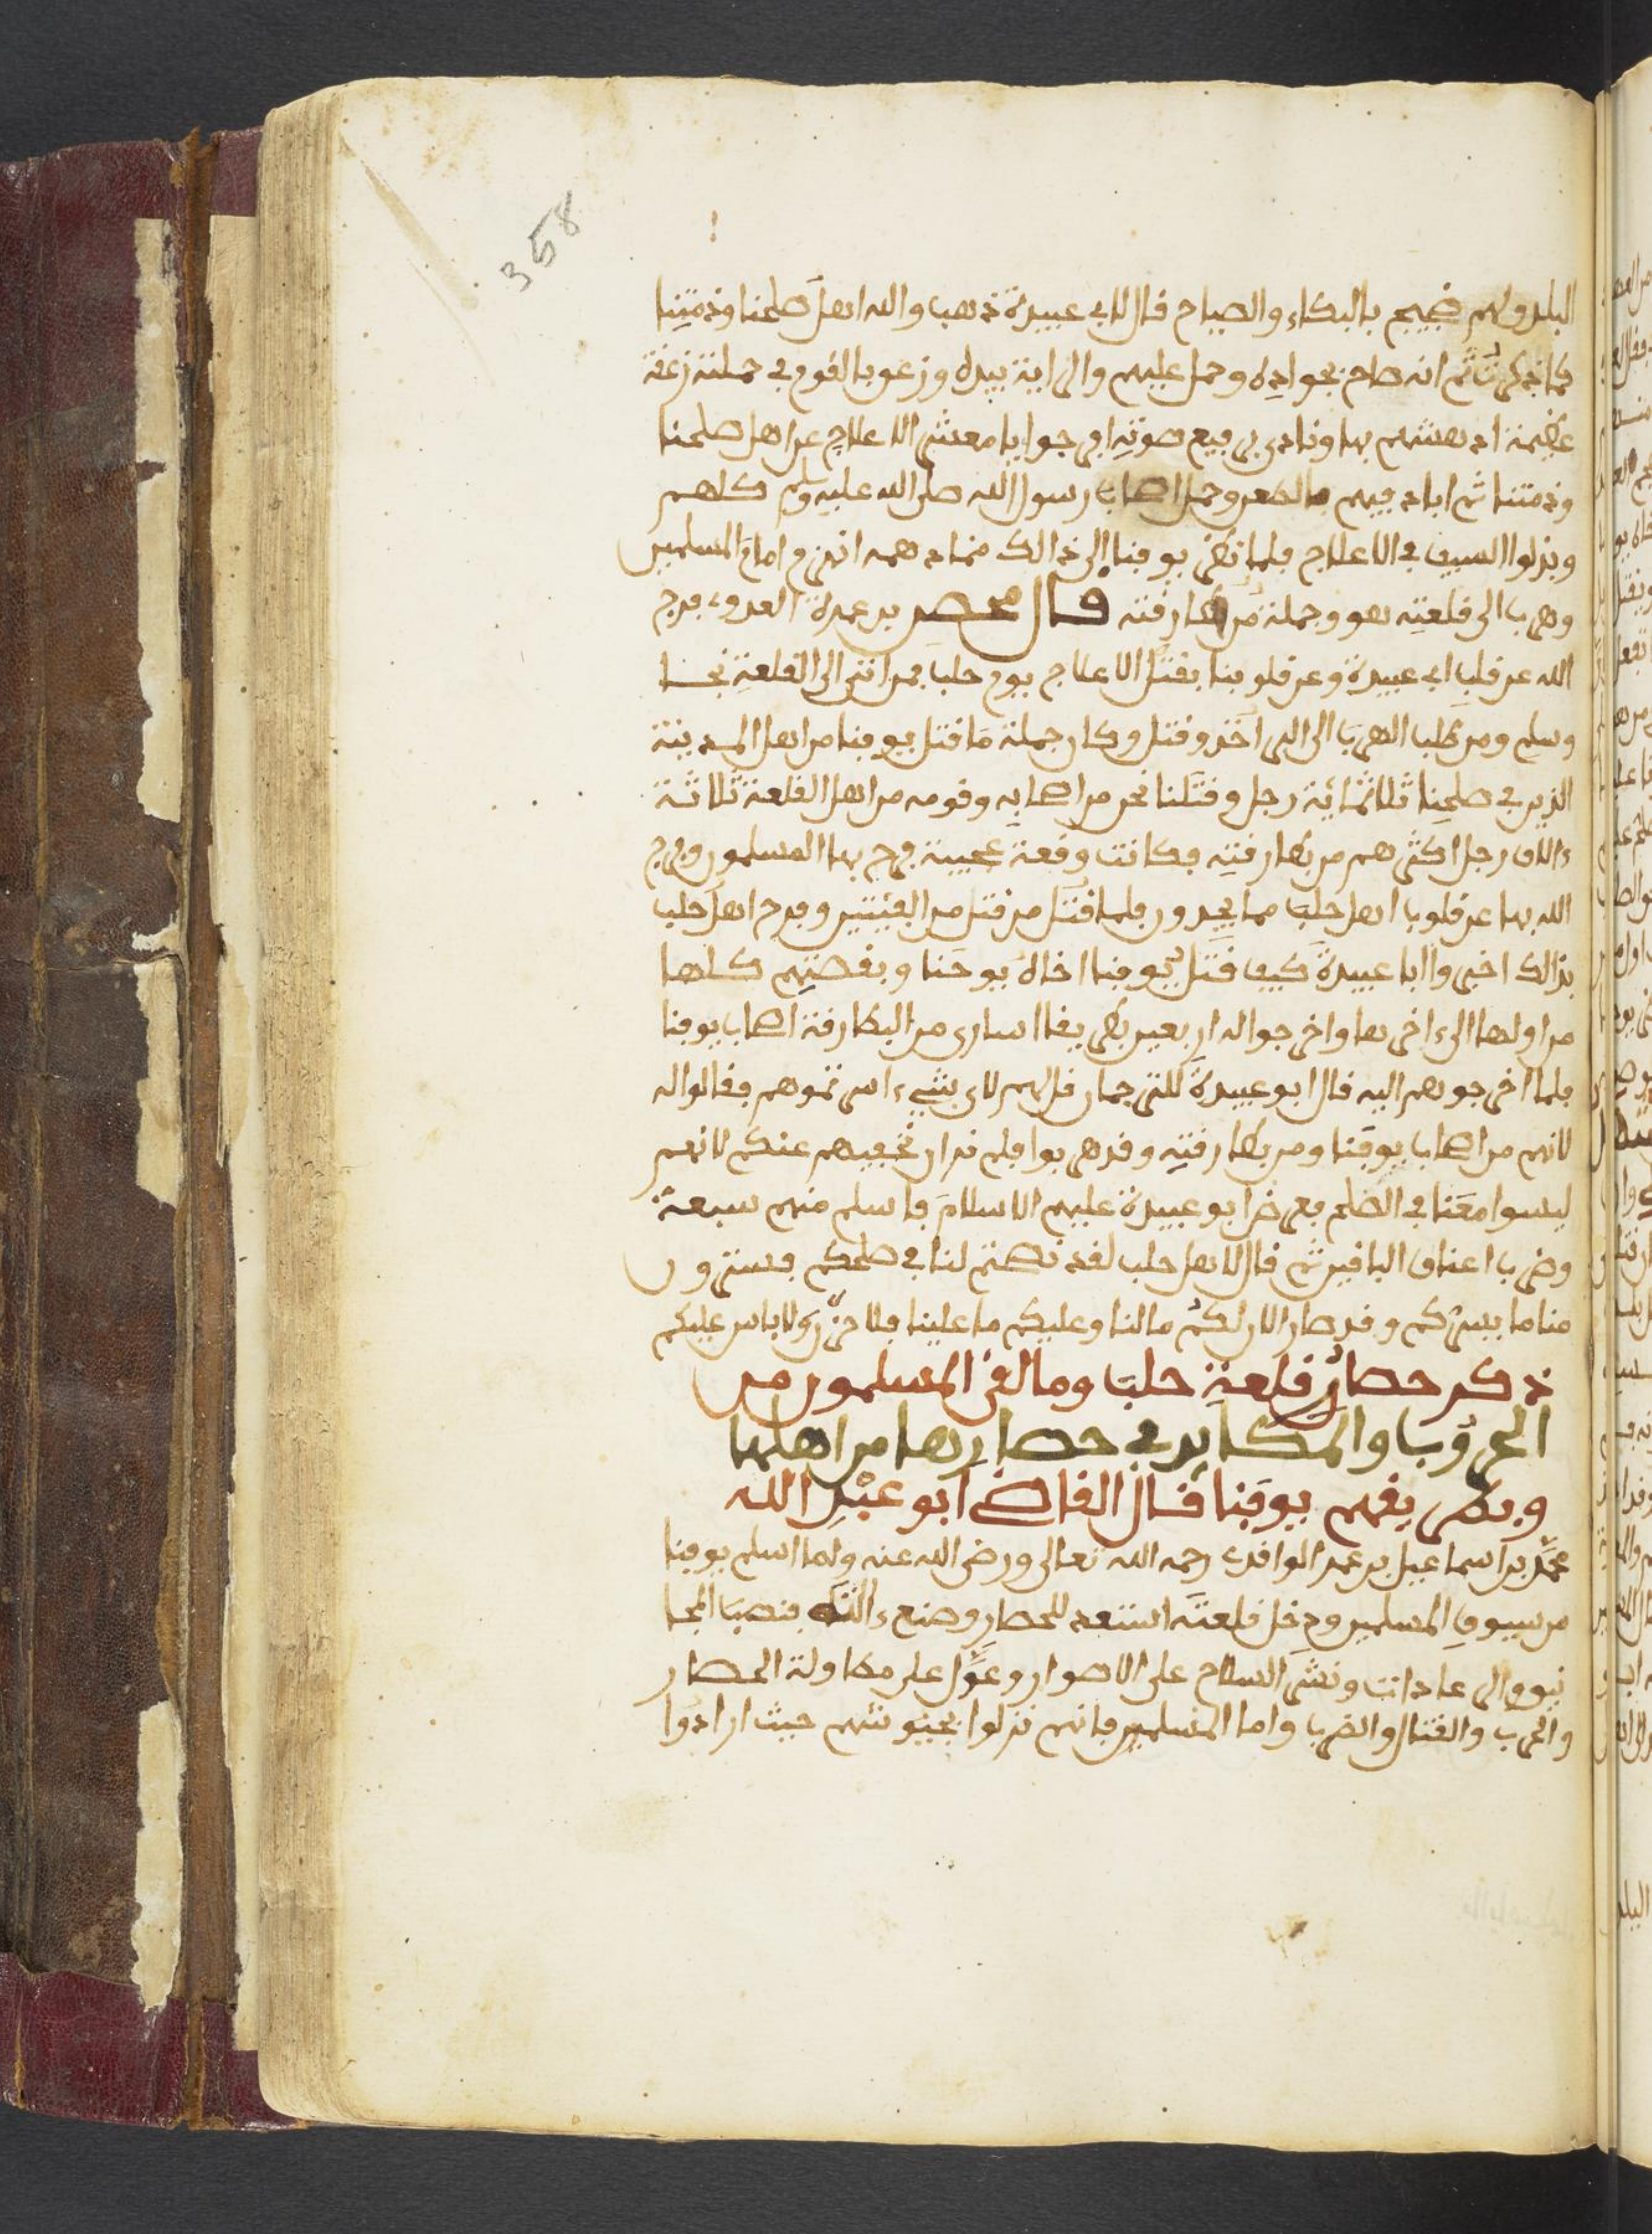 358
البلد ولهم ضجيج بالبكاء والصياح قال لابي عبيدة ذهب والله اهل صلحنا وذمتنا
كما ذكرتَ ثم انه صاح بجواده وحمل عليهم والراية بيده وزعق بالقوم في حملته زعقة
عظيمة ادهشهم بها ونادى برفيع صوته افرجوا يا معشر الاعلاج عن اهل صلحنا
وذمتنا ثم اباد فيهم بالطعن وحمل اصحاب رسول الله صلى الله عليه وسلم كلهم
وبذلوا السيف في الاعلاج فلما نظر يوقنا الى ذالك انهزم امام المسلمين
وهرب الى قلعته هو وجملة من بطارقته قال محصن بن عمرة العدوي ففرج
الله عن قلب ابي عبيدة وعن قلوبنا بقتل الاعلاج يوم حلب فمن اتى الى القلعة نجا
وسلم ومن طلب الهرب الى البر اخذ وقتل وكان جملة ما قتل يوقنا من اهل المدينة
الذين في صلحنا ثلاثمائية رجل وقتلنا نحن من اصحابه وقومه من اهل القلعة ثلاثة
ءالاف رجل اكثرهم من بطارقته فكانت وقعة عجيبة فرح بها المسلمون وفرج
الله بها عن قلوب اهل حلب مما يجدون فلما قتل من قتل من الفئتين وفرح اهل حلب
بذالك اخبروا ابا عبيدة كيف قتل يوقنا اخاه يوحنا وبقصتهم كلها
من اولها الى ءاخرها واخرجوا له اربعين بطريقا اسارى من البطارقة اصحاب يوقنا
فلما اخرجوهم اليه قال ابو عبيدة للترجمان قل لهم لاي شيء اسرتموهم فقالوا له
لانهم من اصحاب يوقنا ومن بطارقته وقد هربوا فلم نر ان نخفيهم عنكم لانهم
ليسوا معنا في الصلح فعرض ابو عبيدة عليهم الاسلام فاسلم منهم سبعة
وضرب اعناق الباقين ثم قال لاهل حلب لقد نصحتم لنا في صلحكم فسترون
منا ما يسركم وقد صار الان لكم ما لنا وعليكم ما علينا فلا حزن ولا باس عليكم
ذكر حصار قلعة حلب وما لقى المسلمون من
الحروب والمكايد في حصارها من اهلها
وبطريقهم يوقنا قال القاضي ابو عبد الله
محمد بن اسماعيل بن عمر الواقدي رحمه الله تعالى ورضي الله عنه ولما اسلم يوقنا
من سيوف المسلمين ودخل قلعته استعد للحصار وصنع ءالته فنصب المجا
نيق والعرادات ونشر السلاح على الاصوار وعول على مطاولة الحصار
والحرب والقتال والضرب واما المسلمين فانهم نزلوا بجيوشهم حيث ارادوا